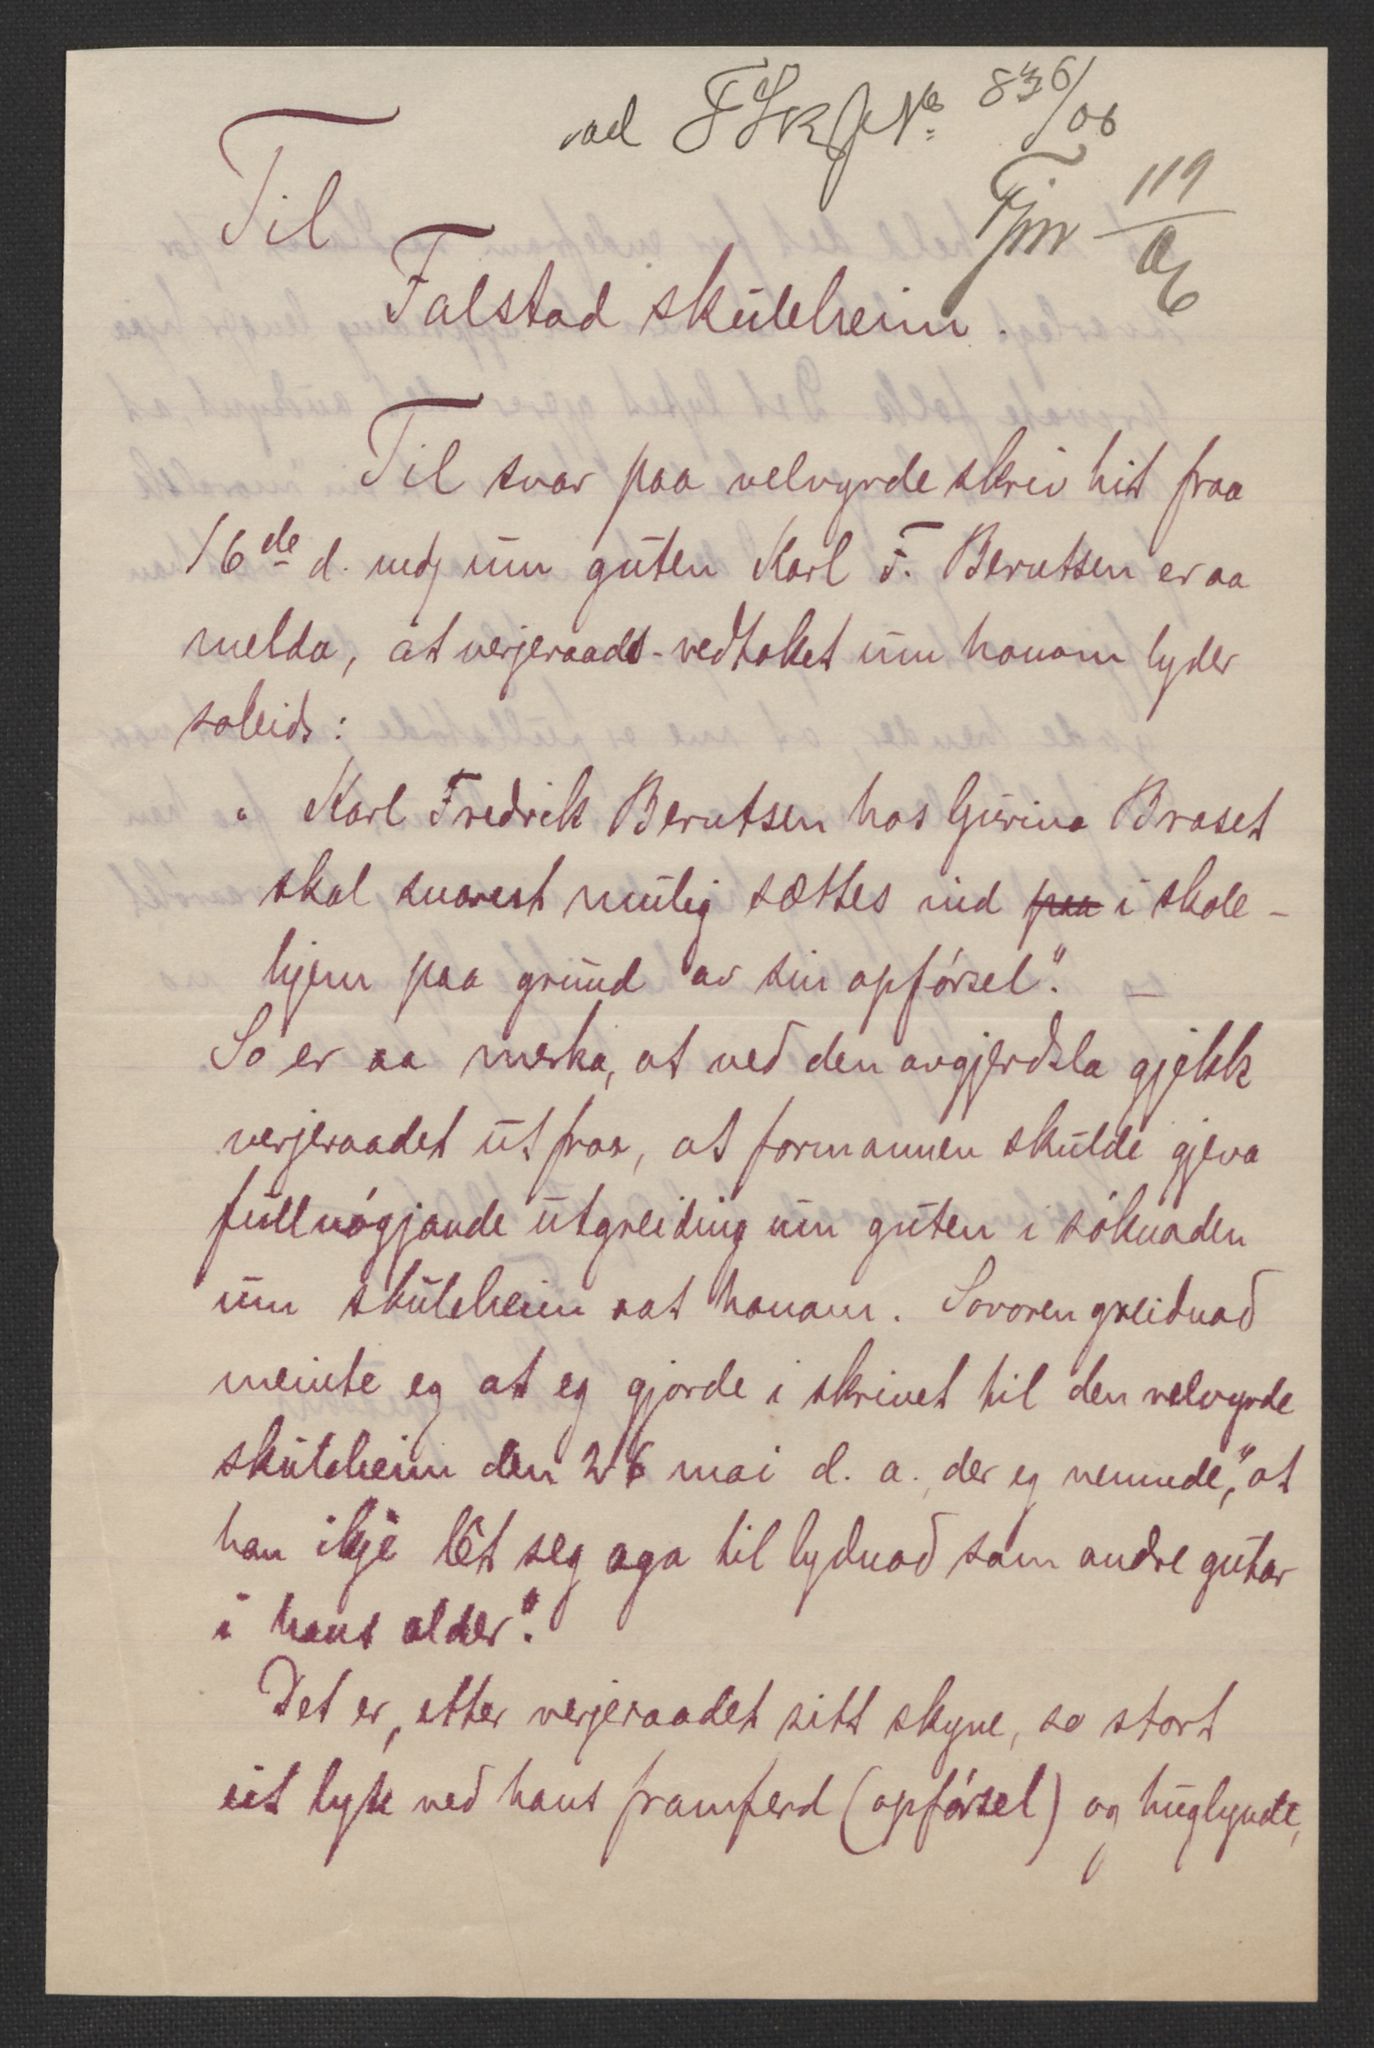 ad FSkj No 836/06
Fjnr 119/06
Til
Falstad skuleheim.
Til svar paa velvyrde skriv hit fraa
16de d. mdj um guten Karl F. Berntsen er aa
melda, at verjeraads-vedtaket um honom lyder
soleids:
" Karl Fredrik Berntsen hos Gurina Braset
skal snarest mulig sættes ind paa i skole-
hjem paa grund av sin opförsel".
So er aa merka, at ved den avgjerdsla gjekk
verjeraadet ut fraa, at formannen skulde gjeva
fullnögjande utgreiding um guten i söknaden
um skuleheim aat honom. Sovoren greidnad
meinte eg at eg gjorde i skrivet til den velvyrde
skuleheim den 26 mai d. a., der eg nemnde, "at
han ikje lêt seg aga til lydnad som andre gutar
i hans alder".
Det er, etter verjeraadet sitt skyne, so stort
eit lyte ved hans framferd (opförsel) og huglynde,